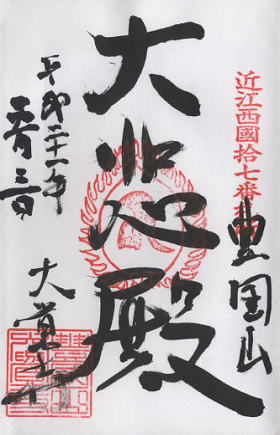 近江西國拾七番札所
豊国山
大悲殿
平成二十一年
大覚寺